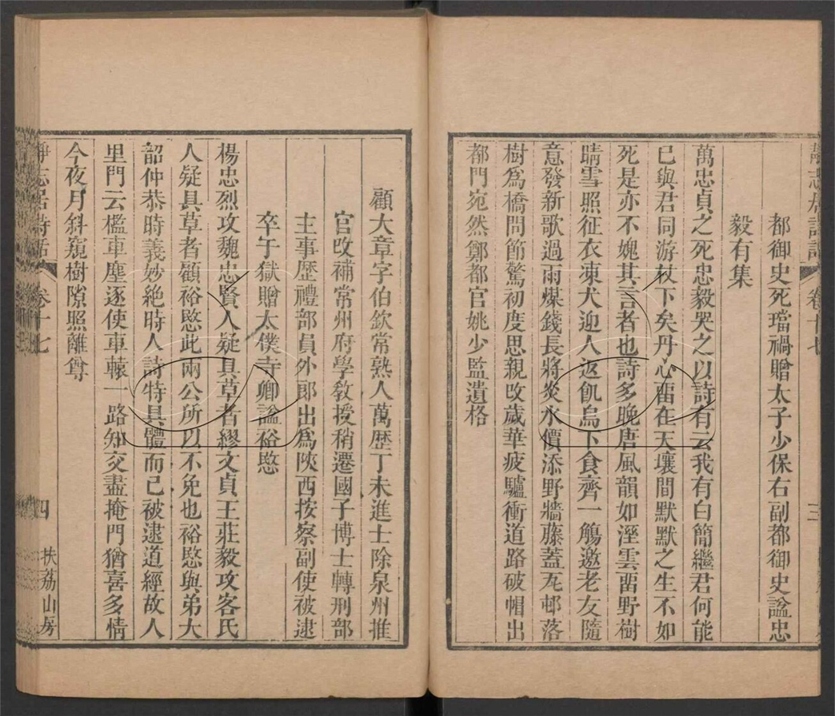 都御史死璫禍贈太子少保右副都御史諡忠
毅有集
萬忠貞之死忠毅哭之以詩有云我有白簡繼君何能
已與君同游杖下矣丹心畱在天壤間默默之生不如
死是亦不媿其言者也詩多晚唐風韻如溼雲畱野樹
晴雪照征衣凍犬迎人返飢烏下食齊一觴邀老友隨
意發新歌過雨煤錢長將炎水價添野牆藤蓋瓦邨落
樹爲橋問節驚初度思親改歲華疲驢衝道路破帽出
都門宛然鄭都官姚少監遺格
顧大章字伯欽常熟人萬歷丁未進士除泉州推
官改補常州府學敎授稍遷國子博士轉刑部
主事歷禮部員外郎出爲陝西按察副使被逮
卒于獄贈太僕寺卿諡裕愍
楊忠烈攻魏忠賢人疑具草者繆文貞王莊毅攻客氏
人疑具草者顧裕愍此兩公所以不免也裕愍與弟大
韶仲恭時義妙絶時人詩特具體而已被逮道經故人
里門云檻車塵逐使車轅一路知交盡掩門猶喜多情
今夜月斜窺樹隙照離尊
靜志居詩話
卷十七
四
扶荔山房